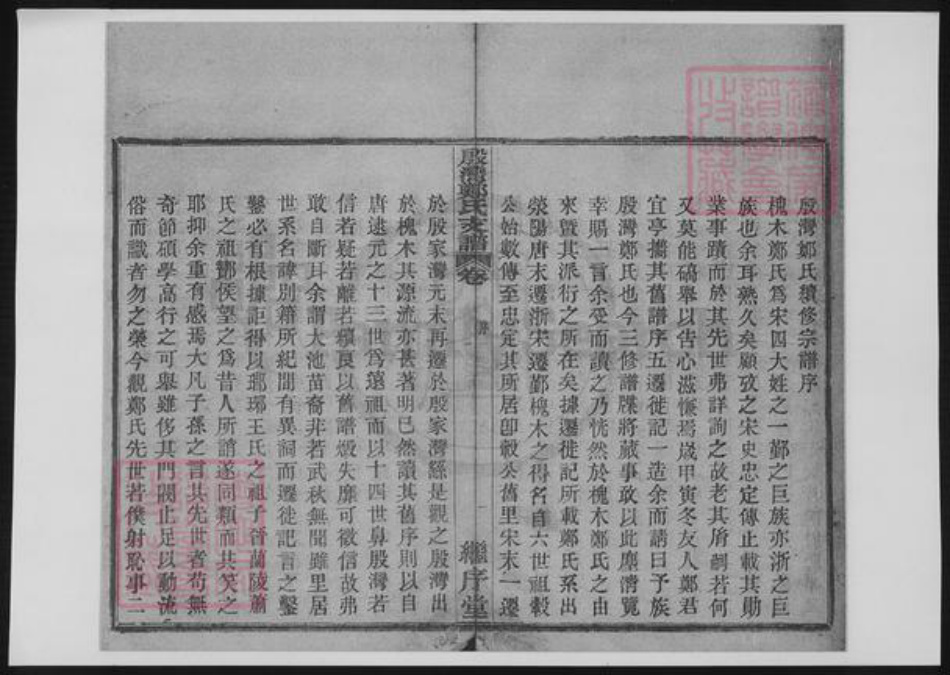 殷灣鄭氏續修宗譜序
槐木鄭氏爲宋四大姓之一鄞之巨族亦浙之巨
族也余耳熟久矣顧攷之宋史忠定傳止載其勛
業事蹟而於其先世弗詳詢之故老其胄嗣若何
又莫能确舉以告心滋慊焉歲甲寅冬友人鄭君
宜亭攜其舊譜序五遷徙記一造余而請曰予族
殷灣鄭氏也今三修譜牒將蕆事敢以此塵清覽
幸賜一言余受而讀之乃恍然於槐木鄭氏之由
來曁其派衍之所在矣據遷徙記所載鄭氏系出
滎陽唐末遷浙宋遷鄞槐木之得名自六世祖穀
公始數傳至忠定其所居卽穀公舊里宋末一遷
殷灣鄭氏支譜 卷 序 一 繼序堂
於殷家灣元末再遷於殷家灣繇是觀之殷灣出
於槐木其源流亦甚著明已然讀其舊序則以自
唐逮元之十三世爲遠祖而以十四世鼻殷灣若
信若疑若離若續良以舊譜燬失靡可徵信故弗
敢自斷耳余謂大池苗裔非若武秋無聞雖里居
世系名諱別籍所紀間有異詞而遷徙記言之鑿
鑿必有根據詎得以瑯琊王氏之祖子晉蘭陵蕭
氏之祖酇侯望之爲昔人所誚遂同類而共笑之
耶抑余重有感焉大凡子孫之言其先世者苟無
奇節碩學高行之可舉雖侈其門閥止足以動流
俗而識者勿之榮今觀鄭氏先世若僕射恥事二